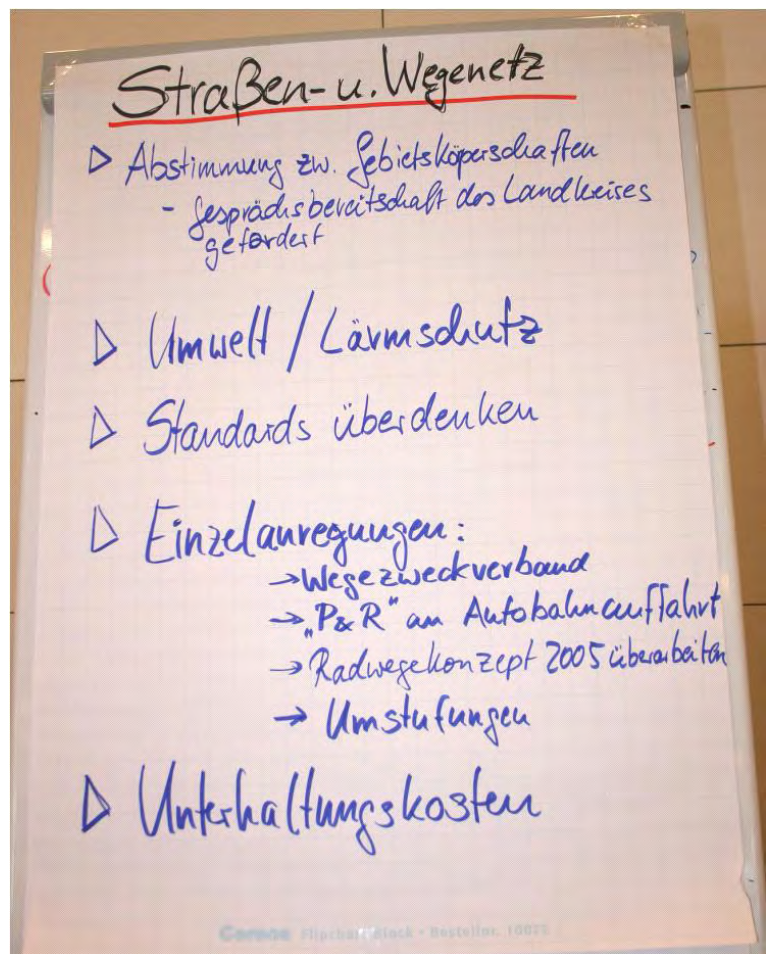 Straßen- u. Wegenetz
▷ Abstimmung zw. Gebietsköperschaften
- Gesprächsbereitschaft des Landkreises
gefordert
▷ Umwelt / Lärmschutz
▷ Standards überdenken
▷ Einzelanregungen:
→ Wegezweckverband
→ „P&R" an Autobahnauffahrt
→ Radwegekonzept 2005 überarbeiten
→ Umstufungen
▷ Unterhaltungskosten
Flipchart-Block • Bestellnr.